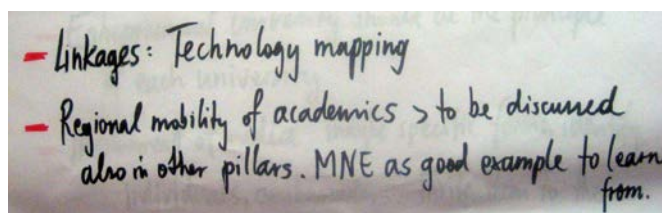 - Linkages: Technology mapping
- Regional mobility of academics > to be discussed
also in other pillars. MNE as good example to learn
from.